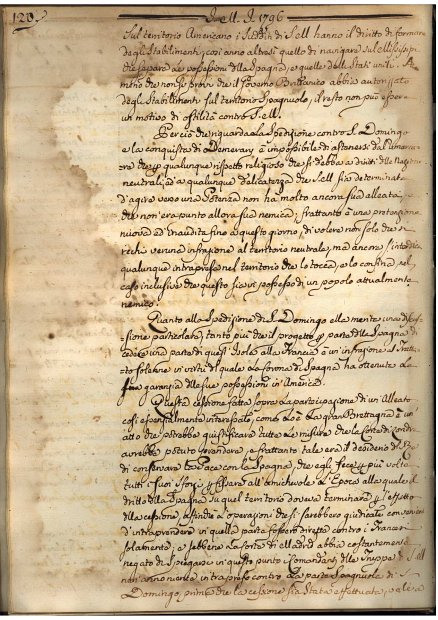 120.
1796
Sul territorio Americano i Sudditi di S. M. hanno il diritto di formare
degli Stabilimenti, così anno altresì quello di navigare sul Missisipi
che separa le possessioni della Spagna, e quelle degli Stati uniti. A
meno che non si provi che il Governo Brittanico abbia autorizato
degli Stabilimenti sul territorio Spagnuolo, il resto non può essere
un motivo di ostilità contro S. M.
Per ciò che riguarda la Spedizione contro S. Domingo
e la conquista di Demerary è impossibile di astenersi dal
che p. qualunque rispetto religioso che si debba a' dritti delle Nazioni
neutrali, ed a qualunque delicatezza che S. M. sia determinata
d'agire verso una Potenza non ha molto ancora sua alleata,
che non era punto allora sua nemica, frattanto è una pretensione
nuova ed inaudita fino a questo giorno, di volere non solo che si
rechi veruna infrazione al territorio neutrale, ma ancora
qualunque intrapresa nel territorio che lo tocca, e lo confina, nel
caso inclusive che questo sia in possesso di un popolo attualmente
nemico.
Quanto alla Spedizione di S. Domingo ella merita una
particolare, tanto più che il progetto p. parte della Spagna di
cedere una parte di quest'Isola alla Francia è un infrazione al
solenne in virtù di quale la Corona di Spagna ha ottenuta la
garanzia delle sue possessioni in America.
Questa cessione fatta sopra la partecipazione di un Alleato
così essenzialmente interessato, come lo è la Gran Brettagna è un
atto che potrebbe giustificare tutte le misure che la Corte di Londra
avrebbe potuto prendere, e frattanto tale era il desiderio del Re
di conservare la Pace con la Spagna, che egli fece p. più volte
tutti i suoi sforzi p. fissare all'amichevole l'Epoca alla quale il
dritto della Spagna su quel territorio doveva terminare p. l'effetto
della cessione, affinche le operazioni che si sarebbero giudicate convenevoli
d'intraprendere in quella parte fossero dirette contro i Francesi
solamente; e sebbene la Corte di Madrid abbia costantemente
negato di spiegarsi in questo punto i Comandanti delle Truppe di S. M.
non anno niente intrapreso contro la parte Spagnuola di S.
Domingo, prima che la cessione sia stata effettuata, vale a